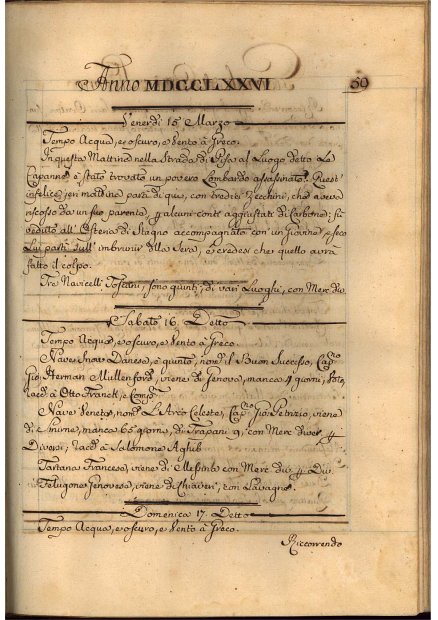 Anno MDCCLXXVI
59
Venerdi 15 Marzo
Tempo Acqua, e oscuro, e Vento à Greco.
In questa Mattina nella Strada di Pisa al Luogo detto Le
Capanne è stato trovato un povero Lombardo assassinato. Quest
infelice jeri mattina partì di qui, con tredici Zecchini, che aveva
riscosso da un suo parente, p alcuni conti aggiustati di Carbone: fù
veduto all' Osteria di Stagno accompagnato con un Giovine, e seco
Lui partì sull' imbrunir della Sera, e credesi che quello avrà
fatto il colpo.
Tre Navicelli Toscani, sono giunti, di vari Luoghi, con Merc div
Sabato 16. Detto
Tempo Acqua, e oscuro, e Vento à Greco.
Nave Danese, è giunto, nom il Buon Successo, Capno
Gio Herman Mullenford, viene di Genova, manca 4 giorni,
racc à Otto Franck, e Comp
Nave Veneta, nom L'Arco Celeste, Capno Gio Petrizio, viene
di Smirne, manca 65 giorni, di Trapani 9, con Merc diver p
Diversi; racc à Salomone Aghib
Tartana Francese, viene di Messina con Merc div p Div
Felugone Genovese, viene di Chiaveri, con Lavagne.
Domenica 17. Detto
Tempo Acqua, e oscuro, e Vento à Greco.
Riccorrendo